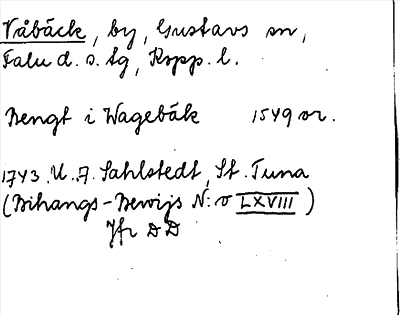 Våbäck, by, Gustavs sn,
Falu d. s. lg, Kopp. l.
Bengt i Wagebäk 1549 or.
1743. U. A. Sahlstedt, St. Tuna
(Bihangs-Bewijs N:o LXVIII)
Jfr DD